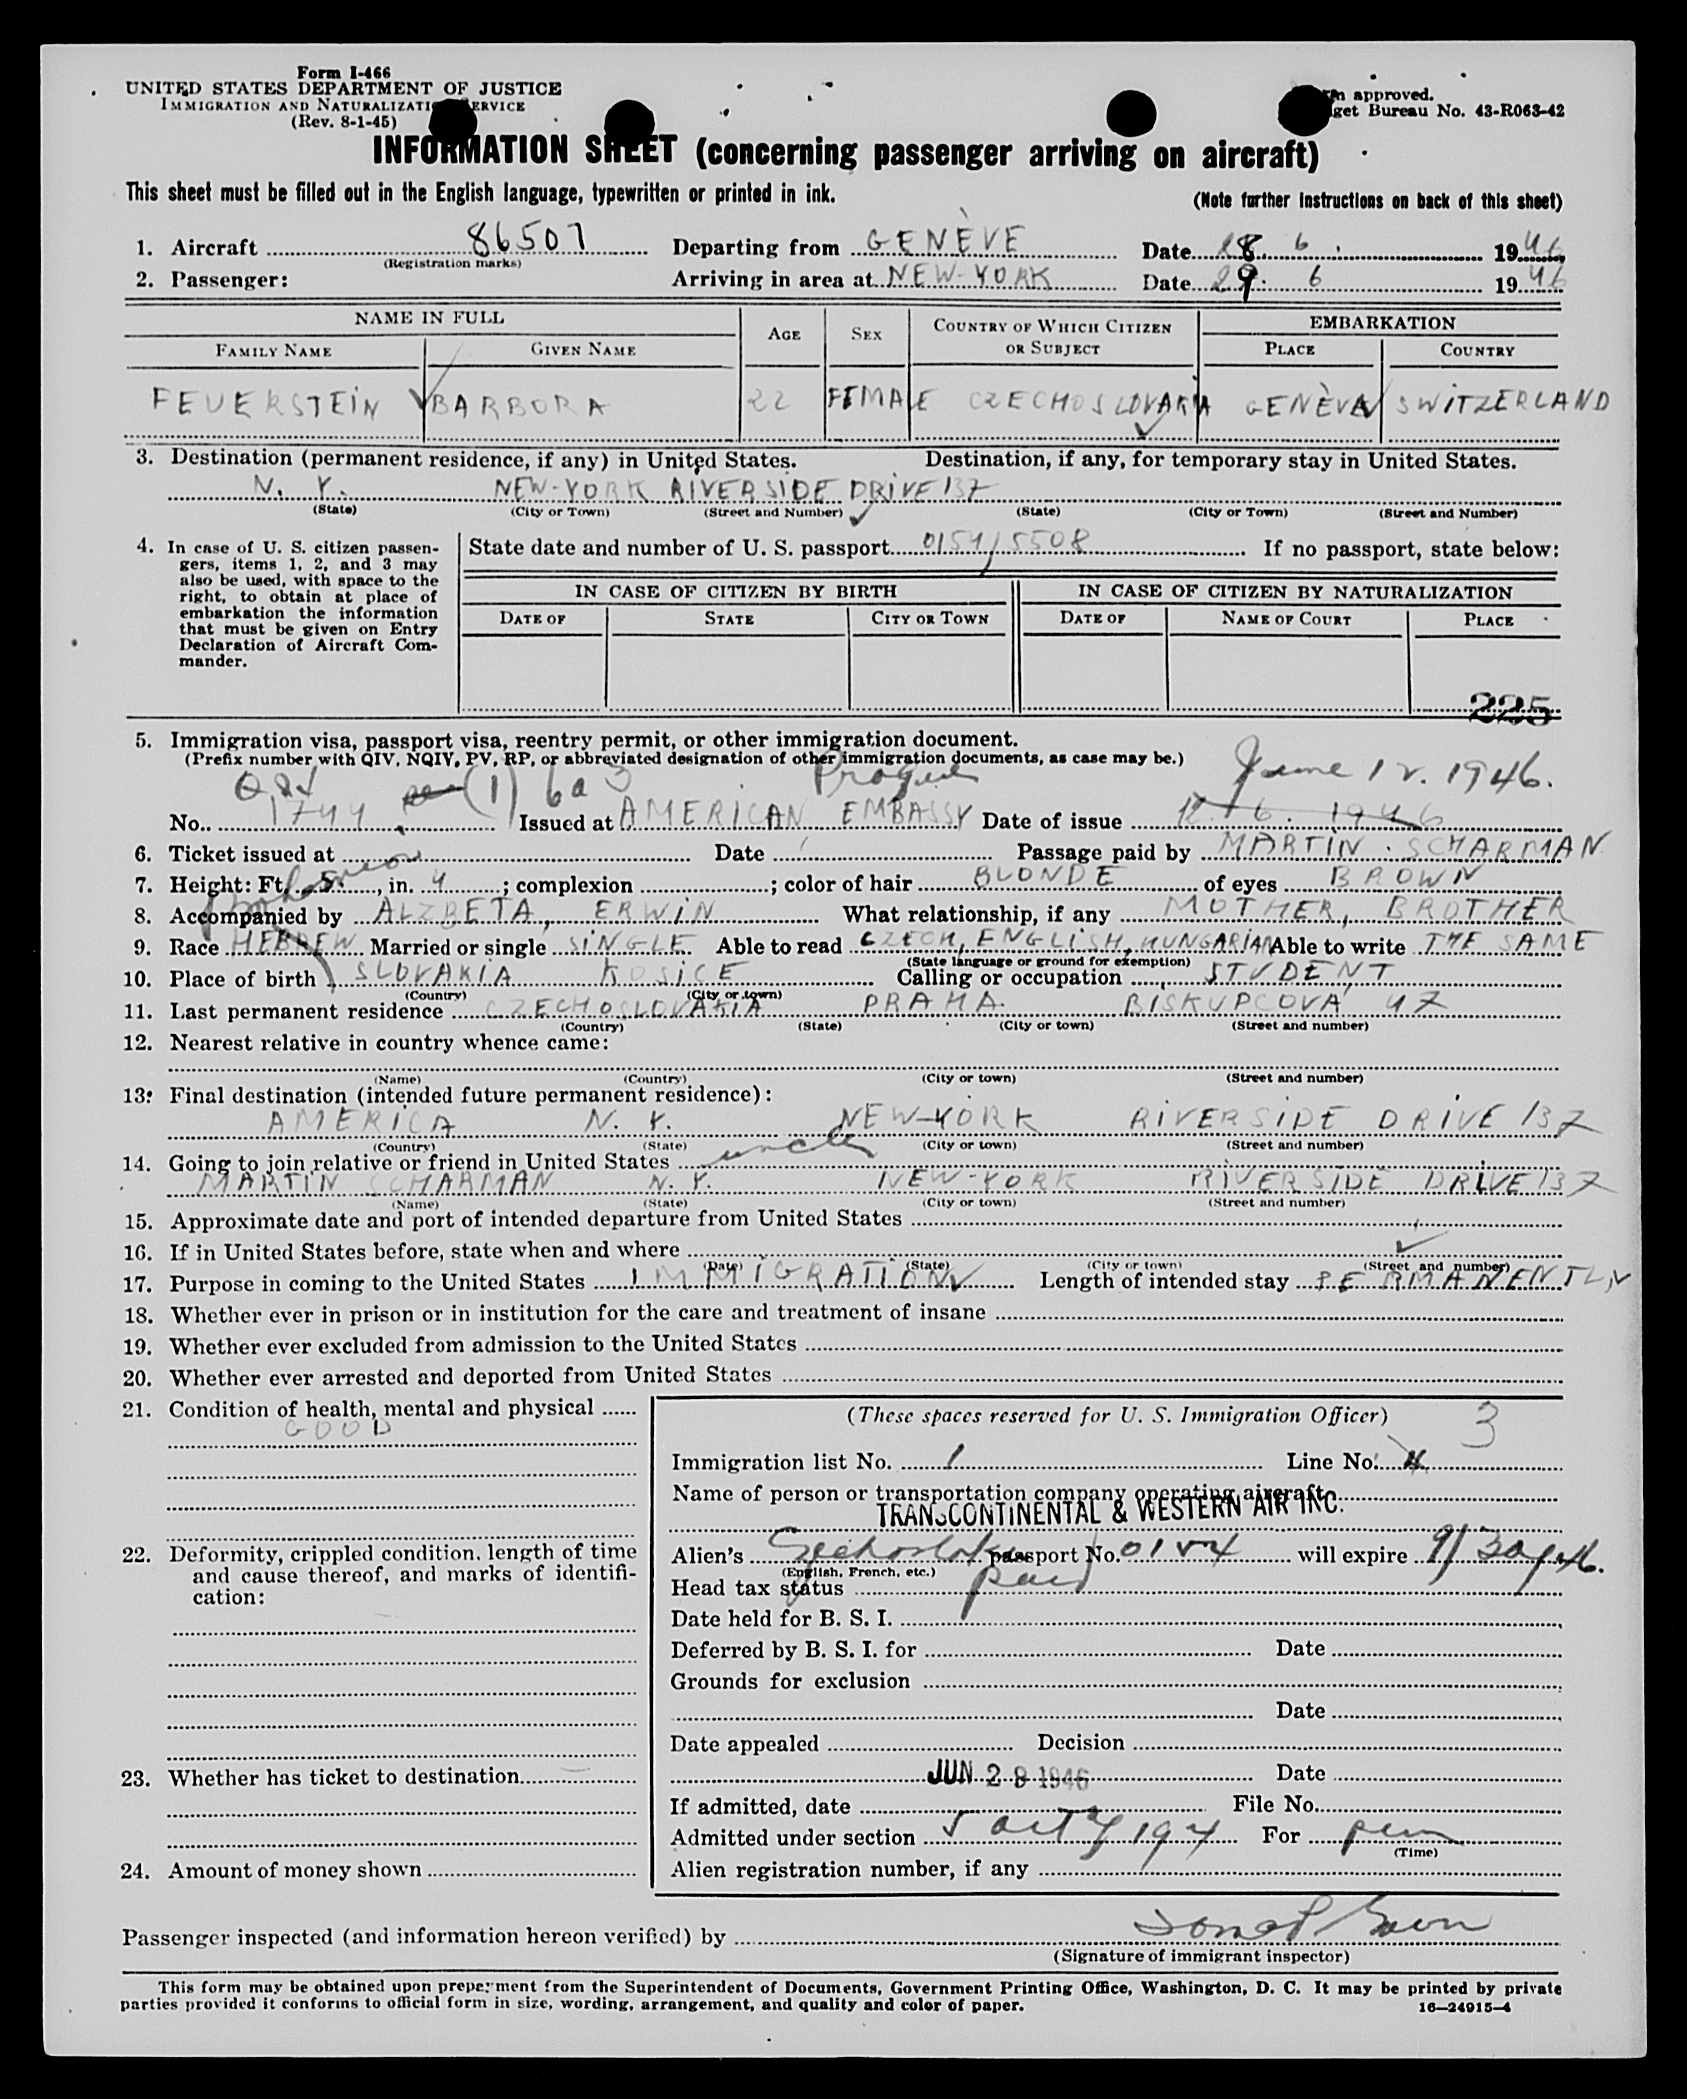 Form I-466
UNITED STATES DEPARTMENT OF JUSTICE
IMMIGRATION AND NATURALIZATION SERVICE
(Rev. 8-1-45)
approved.
Bureau No. 43-R063-42
INFORMATION SHEET (concerning passenger arriving on aircraft)
This sheet must be filled out in the English language, typewritten or printed in ink.
(Note further instructions on back of this sheet)
1. Aircraft 86507 Departing from GENÈVE Date 28. 6. 1946
(Registration marks)
2. Passenger: Arriving in area at NEW-YORK Date 29. 6 1946
NAME IN FULL AGE SEX COUNTRY OF WHICH CITIZEN OR SUBJECT EMBARKATION
FAMILY NAME GIVEN NAME PLACE COUNTRY
FEUERSTEIN BARBORA 22 FEMALE CZECHOSLOVAKIA GENÈVE SWITZERLAND
3. Destination (permanent residence, if any) in United States. Destination, if any, for temporary stay in United States.
N. Y. NEW-YORK RIVERSIDE DRIVE 137
(State) (City or Town) (Street and Number) (State) (City or Town) (Street and Number)
4. In case of U. S. citizen passengers, items 1, 2, and 3 may also be used, with space to the right, to obtain at place of embarkation the information that must be given on Entry Declaration of Aircraft Commander.
State date and number of U. S. passport 0154/5508 If no passport, state below:
IN CASE OF CITIZEN BY BIRTH IN CASE OF CITIZEN BY NATURALIZATION
DATE OF STATE CITY OR TOWN DATE OF NAME OF COURT PLACE
225
5. Immigration visa, passport visa, reentry permit, or other immigration document.
(Prefix number with QIV, NQIV, PV, RP, or abbreviated designation of other immigration documents, as case may be.)
(1) 6a3 Prague June 12. 1946.
No. 1744 Issued at AMERICAN EMBASSY Date of issue 12. 6. 1946
6. Ticket issued at Date Passage paid by MARTIN SCHARMAN
7. Height: Ft. 5, in. 4; complexion ; color of hair BLONDE of eyes BROWN
8. Accompanied by ALZBETA, ERWIN What relationship, if any MOTHER, BROTHER
9. Race HEBREW Married or single SINGLE Able to read CZECH, ENGLISH, HUNGARIAN Able to write THE SAME
(State language or ground for exemption)
10. Place of birth SLOVAKIA KOSICE Calling or occupation STUDENT
(Country) (City or town)
11. Last permanent residence CZECHOSLOVAKIA PRAHA. BISKUPCOVA 47
(Country) (State) (City or town) (Street and number)
12. Nearest relative in country whence came:
(Name) (Country) (City or town) (Street and number)
13. Final destination (intended future permanent residence):
AMERICA N. Y. NEW-YORK RIVERSIDE DRIVE 137
(Country) (State) (City or town) (Street and number)
14. Going to join relative or friend in United States uncle
MARTIN SCHARMAN N. Y. NEW-YORK RIVERSIDE DRIVE 137
(Name) (State) (City or town) (Street and number)
15. Approximate date and port of intended departure from United States
16. If in United States before, state when and where
(Date) (State) (City or town) (Street and number)
17. Purpose in coming to the United States IMMIGRATION Length of intended stay PERMANENTLY
18. Whether ever in prison or in institution for the care and treatment of insane
19. Whether ever excluded from admission to the United States
20. Whether ever arrested and deported from United States
21. Condition of health, mental and physical
GOOD
22. Deformity, crippled condition, length of time and cause thereof, and marks of identification:
23. Whether has ticket to destination
24. Amount of money shown
(These spaces reserved for U. S. Immigration Officer) 3
Immigration list No. 1 Line No. 4
Name of person or transportation company operating aircraft
TRANSCONTINENTAL & WESTERN AIR INC.
Alien's passport No. 0154 will expire 9/30/46.
(English, French, etc.)
Head tax status paid
Date held for B. S. I.
Deferred by B. S. I. for Date
Grounds for exclusion
Date
Date appealed Decision
JUN 28 1946 Date
If admitted, date File No.
Admitted under section 5 act of 1924 For perm
(Time)
Alien registration number, if any
Passenger inspected (and information hereon verified) by
(Signature of immigrant inspector)
This form may be obtained upon prepayment from the Superintendent of Documents, Government Printing Office, Washington, D. C. It may be printed by private
parties provided it conforms to official form in size, wording, arrangement, and quality and color of paper.
16—24915-4